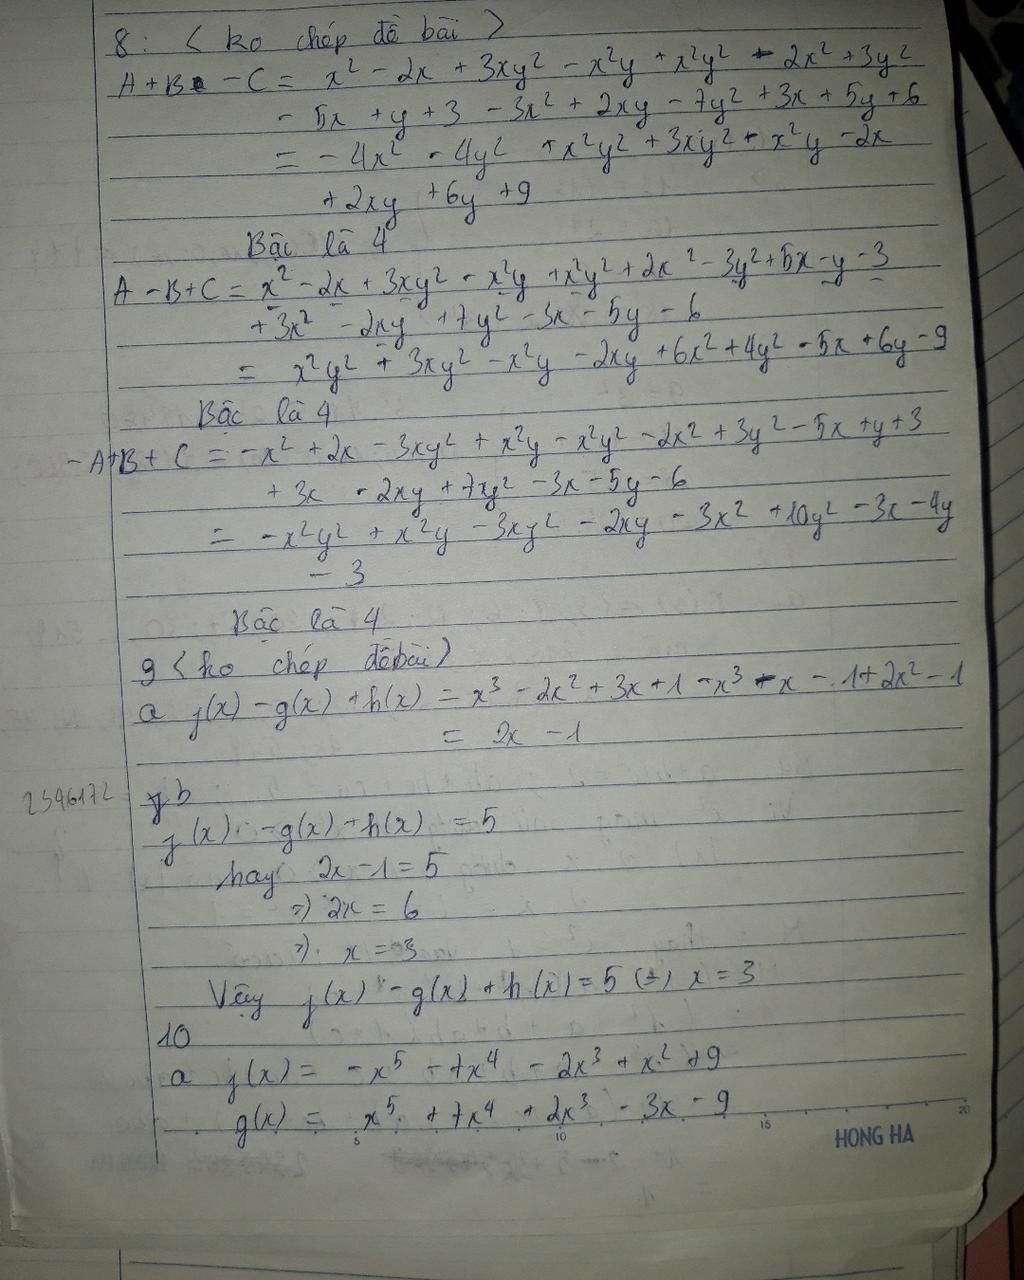 8: < ko chép đề bài >
A+B - C = x² - 2x + 3xy² - x²y + x²y² - 2x² + 3y²
- 5x + y + 3 - 3x² + 2xy - 7y² + 3x + 5y + 6
= - 4x² - 4y² + x²y² + 3xy² - x²y - 2x
+ 2xy + 6y + 9
Bậc là 4
A - B + C = x² - 2x + 3xy² - x²y + x²y² + 2x² - 3y² + 5x - y - 3
+ 3x² - 2xy + 7y² - 3x - 5y - 6
= x²y² + 3xy² - x²y - 2xy + 6x² + 4y² - 5x + 6y - 9
Bậc là 4
- A+B + C = -x² + 2x - 3xy² + x²y - x²y² - 2x² + 3y² - 5x + y + 3
+ 3x - 2xy + 7y² - 3x - 5y - 6
= - x²y² + x²y - 3xy² - 2xy - 3x² + 10y² - 3x - 4y
- 3
Bậc là 4
9 < ko chép đề bài >
a f(x) - g(x) + h(x) = x³ - 2x² + 3x + 1 - x³ - x - 1 + 2x² - 1
= 2x - 1
2546172
b
f(x) - g(x) + h(x) = 5
hay 2x - 1 = 5
=> 2x = 6
=> x = 3
Vậy f(x) - g(x) + h(x) = 5 (=) x = 3
10
a f(x) = - x⁵ - 7x⁴ - 2x³ + x² + 9
g(x) = x⁵ + 7x⁴ + 2x³ - 3x - 9
5 10 15 20
HONG HA